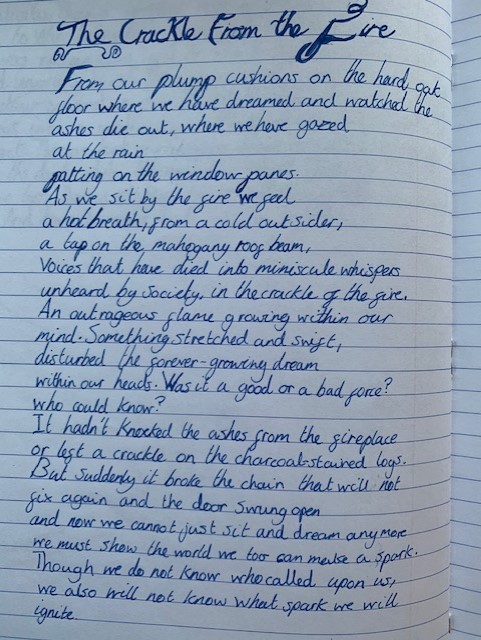 The Crackle From the Fire
From our plump cushions on the hard, oak
floor where we have dreamed and watched the
ashes die out, where we have gazed
at the rain
patting on the window panes.
As we sit by the fire we feel
a hot breath, from a cold outsider,
a tap on the mahogany roof beam,
Voices that have died into miniscule whispers
unheard by society, in the crackle of the fire.
An outrageous flame growing within our
mind. Something stretched and swift,
disturbed the forever-growing dream
within our heads. Was it a good or a bad force?
who could know?
It hadn't knocked the ashes from the fireplace
or left a crackle on the charcoal-stained logs.
But suddenly it broke the chain that will not
fix again and the door swung open
and now we cannot just sit and dream any more
we must show the world we too can make a spark.
Though we do not know who called upon us,
we also will not know what spark we will
ignite.